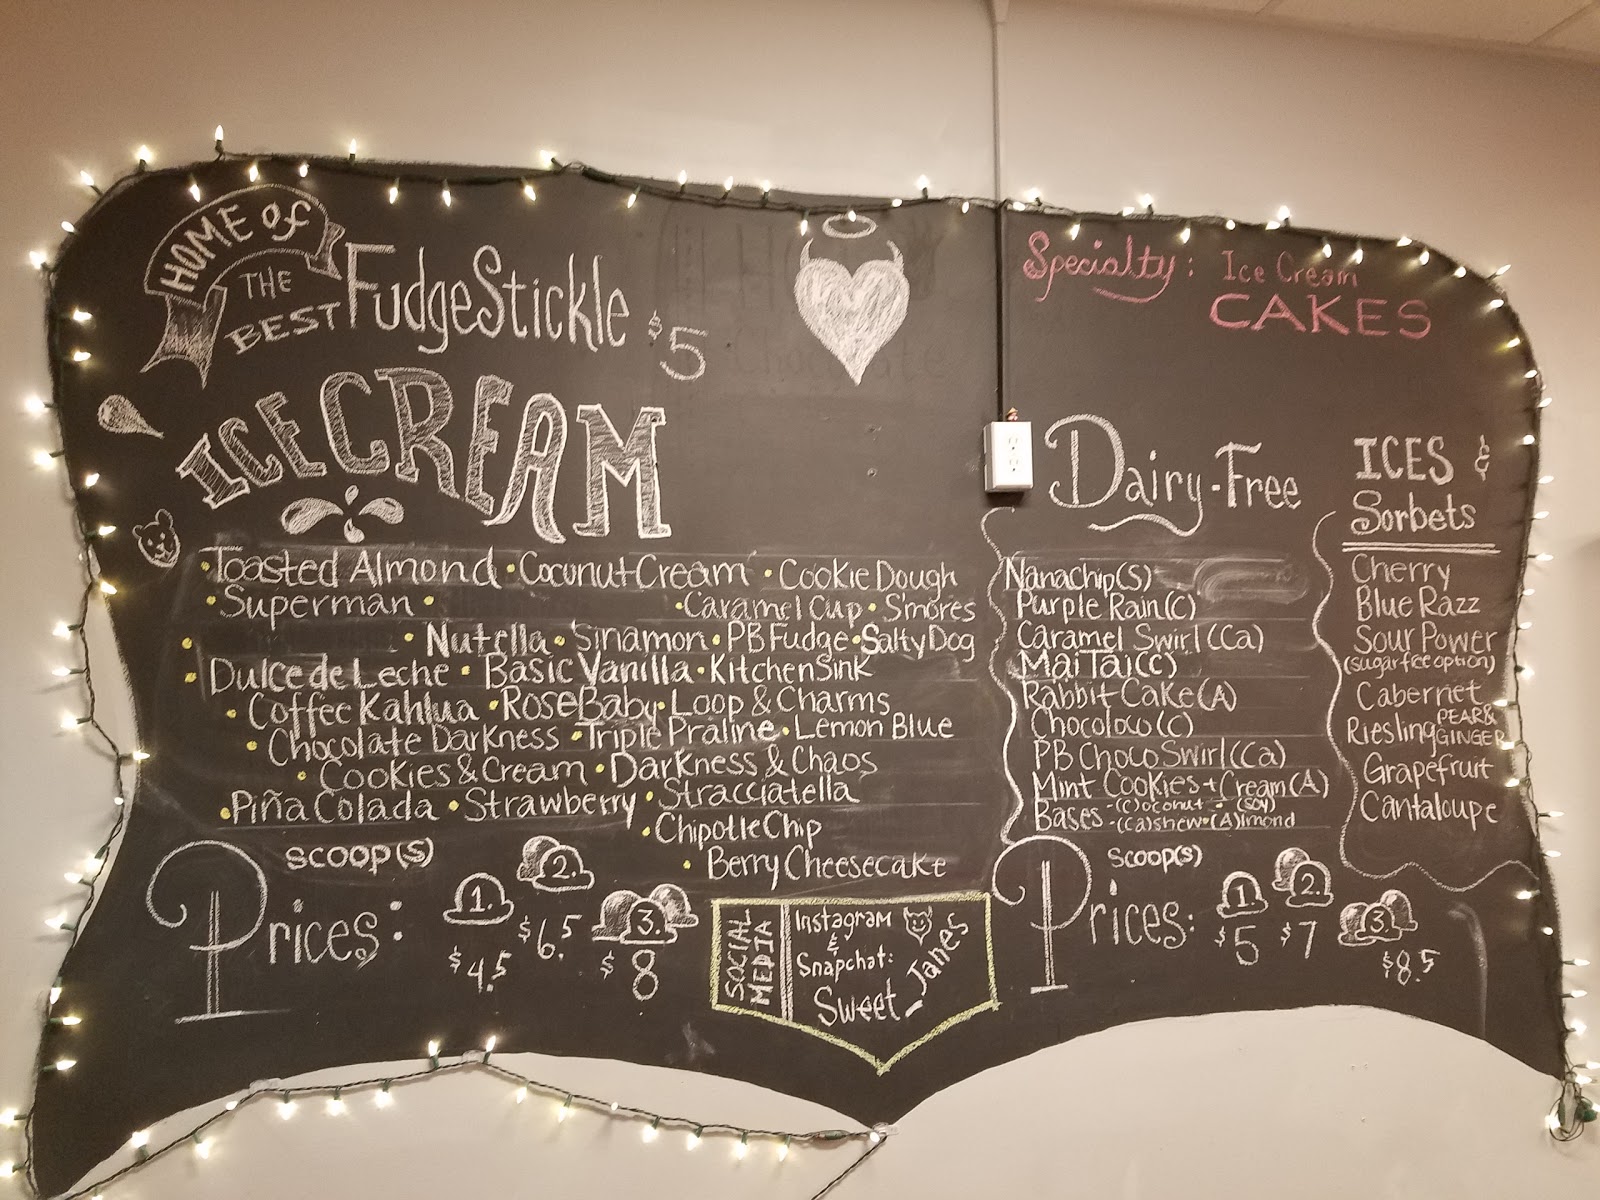 HOME of
THE
BEST FudgeStickle $5
ICE CREAM
• Toasted Almond • Coconut Cream • Cookie Dough
• Superman • • Caramel Cup • S'mores
• • Nutella • Sinamon • PB Fudge • Salty Dog
• Dulce de Leche • Basic Vanilla • Kitchen Sink
• Coffee Kahlua • RoseBaby • Loop & Charms
• Chocolate Darkness • Triple Praline • Lemon Blue
• Cookies & Cream • Darkness & Chaos
• Piña Colada • Strawberry • Stracciatella
• Chipotle Chip
• Berry Cheesecake
Prices:
SCOOP(S)
1. 2. 3.
$4.5 $6.5 $8
SOCIAL
MEDIA
Instagram
&
Snapchat:
Sweet-Janes
Specialty: Ice Cream
CAKES
Dairy-Free
Nanachip(S)
Purple Rain(C)
Caramel Swirl(Ca)
Mai Tai(C)
Rabbit Cake(A)
Chocoloco(C)
PB Choco Swirl(Ca)
Mint Cookies + Cream(A)
Bases -(C)oconut - (Soy)
-(Ca)shew •(A)lmond
Prices:
SCOOP(S)
1. 2. 3.
$5 $7 $8.5
ICES &
Sorbets
Cherry
Blue Razz
Sour Power
(sugar free option)
Cabernet
Riesling PEAR &
GINGER
Grapefruit
Cantaloupe